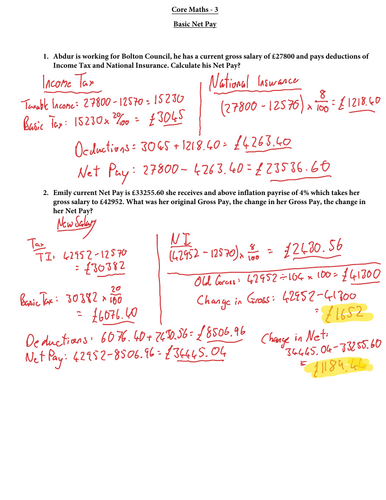 Core Maths - 3
Basic Net Pay
1. Abdur is working for Bolton Council, he has a current gross salary of £27800 and pays deductions of
Income Tax and National Insurance. Calculate his Net Pay?
Income Tax
Taxable Income: 27800 - 12570 = 15230
Basic Tax: 15230 x 20/100 = £3045
National Insurance
(27800 - 12570) x 8/100 = £1218.40
Deductions = 3045 + 1218.40 = £4263.40
Net Pay: 27800 - 4263.40 = £23536.60
2. Emily current Net Pay is £33255.60 she receives and above inflation payrise of 4% which takes her
gross salary to £42952. What was her original Gross Pay, the change in her Gross Pay, the change in
her Net Pay?
New Salary
Tax
TI: 42952 - 12570
= £30382
Basic Tax: 30382 x 20/100
= £6076.40
NI
(42952 - 12570) x 8/100 = £2430.56
Old Gross: 42952 ÷ 104 x 100 = £41300
Change in Gross: 42952 - 41300
= £1652
Deductions: 6076.40 + 2430.56 = £8506.96
Net Pay: 42952 - 8506.96 = £34445.04
Change in Net:
34445.04 - 33255.60
= £1189.44